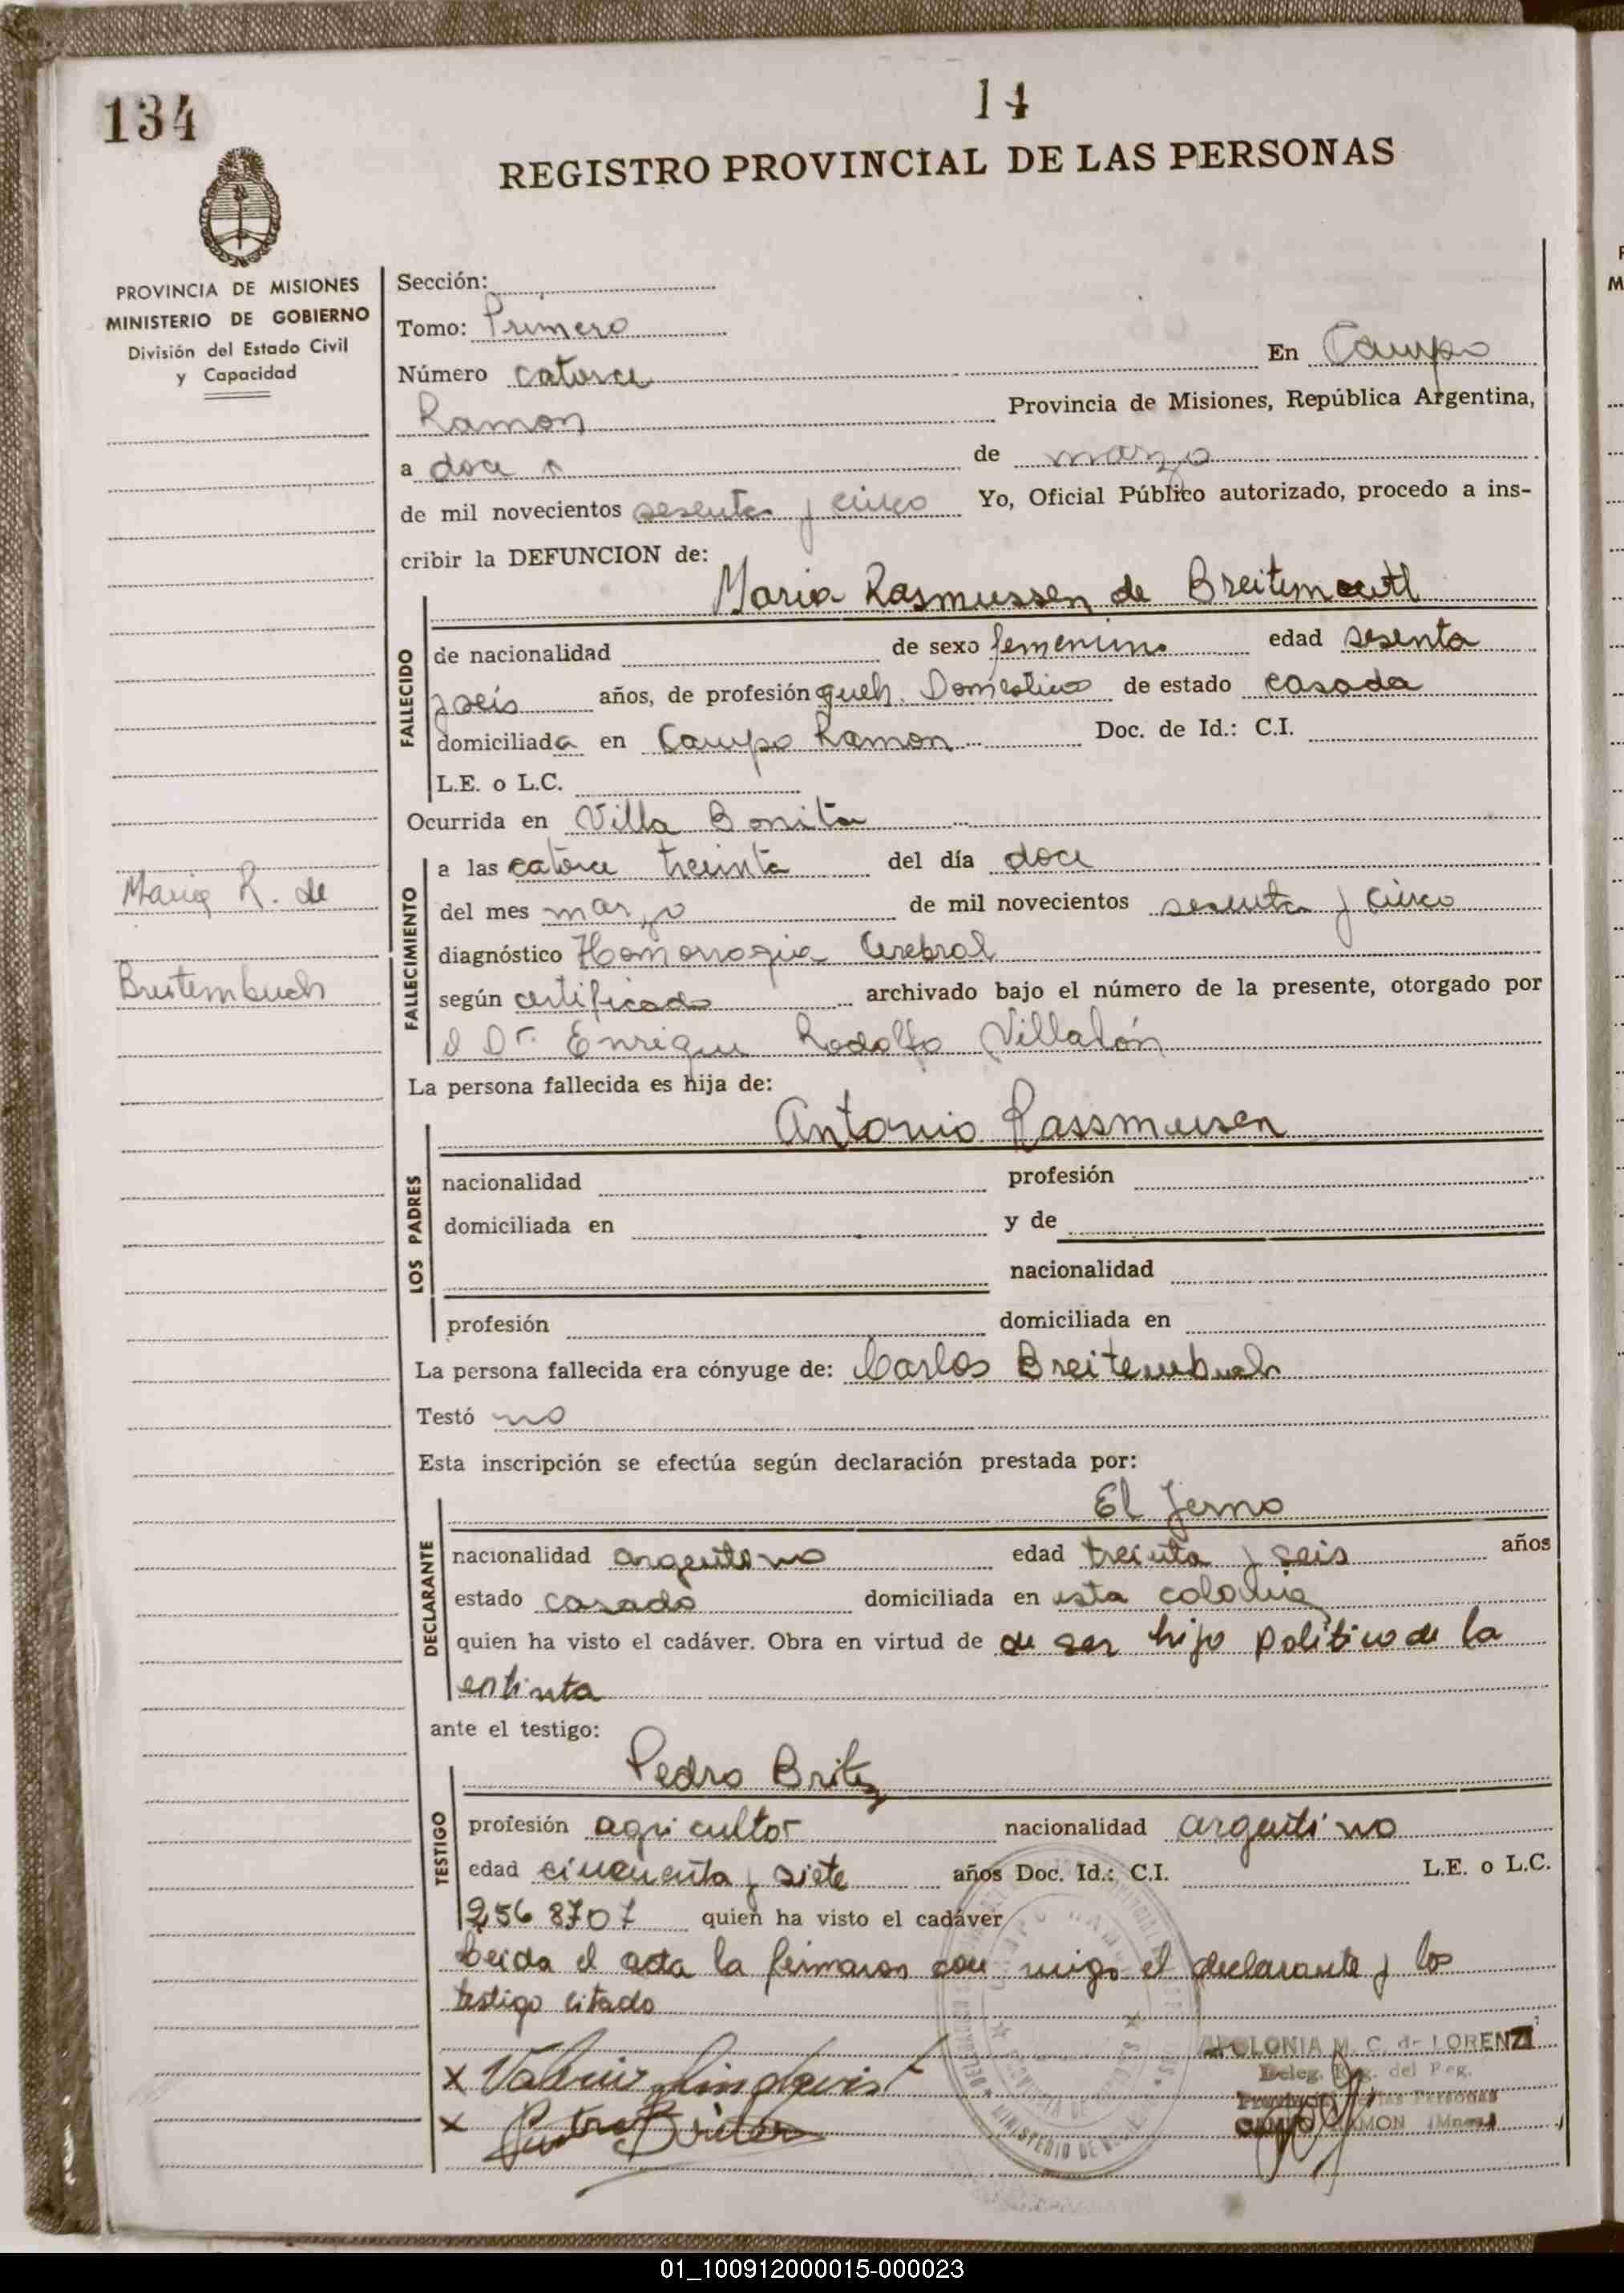 134
14
REGISTRO PROVINCIAL DE LAS PERSONAS
PROVINCIA DE MISIONES
MINISTERIO DE GOBIERNO
División del Estado Civil
y Capacidad
Sección:
Tomo: Primero
Número catorce En Campo
Ramon Provincia de Misiones, República Argentina,
a doce de marzo
de mil novecientos sesenta y cinco Yo, Oficial Público autorizado, procedo a ins-
cribir la DEFUNCION de:
Maria Rasmussen de
FALLECIDO
de nacionalidad de sexo femenino edad sesenta
y seis años, de profesión queh. Domestico de estado casada
domiciliada en Campo Ramon Doc. de Id.: C.I.
L.E. o L.C.
Ocurrida en Villa Bonita
FALLECIMIENTO
a las catorce treinta del día doce
del mes marzo de mil novecientos sesenta y cinco
diagnóstico Homorragia Cerebral
según certificado archivado bajo el número de la presente, otorgado por
el Dr. Enrique Rodolfo Villalón
Maria R. de
Breitembuch
La persona fallecida es hija de:
Antonio Rassmusen
LOS PADRES
nacionalidad profesión
domiciliada en y de
nacionalidad
profesión domiciliada en
La persona fallecida era cónyuge de: Carlos Breitembuch
Testó no
Esta inscripción se efectúa según declaración prestada por:
El yerno
DECLARANTE
nacionalidad argentino edad treinta y seis años
estado casado domiciliada en esta colonia
quien ha visto el cadáver. Obra en virtud de de ser hijo politico de la
entinta
ante el testigo:
Pedro Britez
TESTIGO
profesión agricultor nacionalidad argentino
edad cincuenta y siete años Doc. Id.: C.I. L.E. o L.C.
2568707 quien ha visto el cadáver
Leida el acta la firmaron con migo el declarante y los
testigo citado
APOLONIA M. C. de LORENZI
Deleg. Reg. del Reg.
Provincial de las Personas
CAMPO RAMON (Mnes)
x
x
MINISTERIO DE
01_100912000015-000023